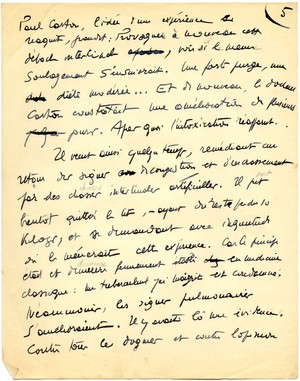 5
Paul Carton, l'idée d'une expérience
naquit, grandit : Provoquer à nouveau cette
débâcle intestinale, voir si le même
soulagement s'ensuivrait. Une forte purge, une
diète modérée... Et de nouveau, le docteur
Carton constatait une amélioration de plusieurs
jours. Après quoi l'intoxication
Il vécut ainsi quelque temps, remédiant au
retour des signes d'encrassement
par des chasses intestinales artificielles. Il put
bientôt quitter le lit, ayant du reste perdu 10
kilogs, et se demandant avec inquiétude
où le mènerait cette expérience. Car le principe
était et demeure fermement en médecine
classique : un tuberculeux qui maigrit est condamné.
Néanmoins, les signes pulmonaires
s'amélioraient. Il y avait là une évidence.
Contre tous les dogmes et contre l'opinion